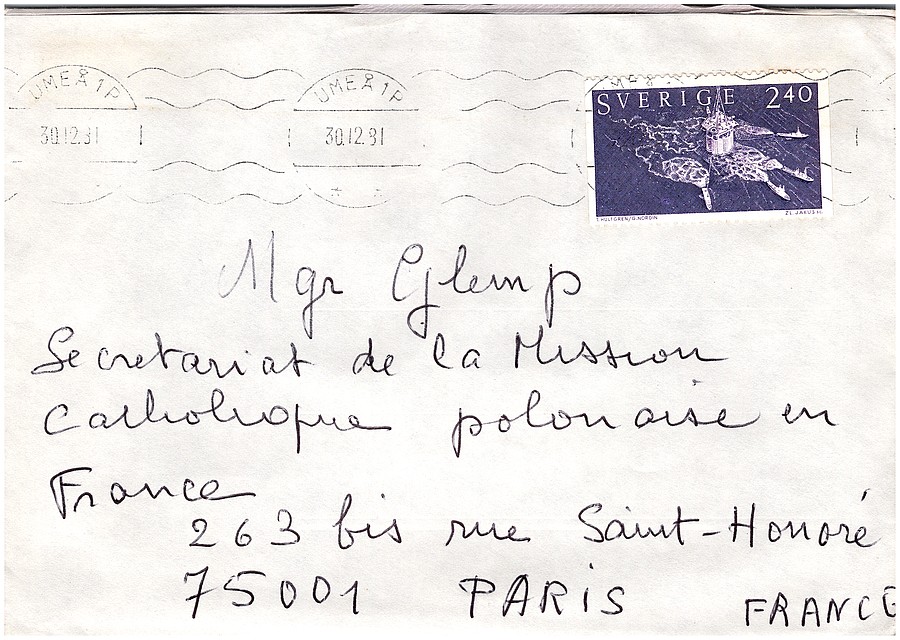 UMEÅ 1P UMEÅ 1P
30.12.81 30.12.81
SVERIGE 240
T. HULTGREN/G. NORDIN ZL. JAKUS SC.
Mgr Glemp
Secretariat de la Mission
Catholique polonaise en
France
263 bis rue Saint-Honoré
75001 PARIS FRANCE